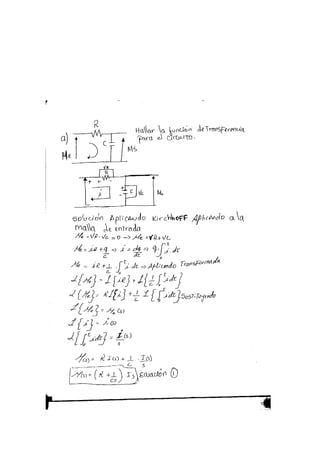 a)
R
C
Me
Ms
Hallar la función de Transferencia
para el circuito:
VR
R
+ -
i
C
Vc
Ms
solución Aplicando Kirchhoff Aplicando a la
malla de entrada
Me - VR - Vc = 0 -> Me = VR + Vc
Me = iR + q/C => i = dq/dt => q = ∫₀ᵗ i dt
Me = iR + 1/C · ∫₀ᵗ i dt => Aplicando Transformada
ℒ{Me} = ℒ{iR} + ℒ{1/C ∫₀ᵗ i dt}
ℒ{Me} = Rℒ{i} + 1/C ℒ{∫₀ᵗ i dt} Sustituyendo
ℒ{Me} = Me(s)
ℒ{i} = I(s)
ℒ{∫₀ᵗ i dt} = I(s)/s
Me(s) = R I(s) + 1/C · I(s)/s
Me(s) = (R + 1/Cs) Is Ecuación ①